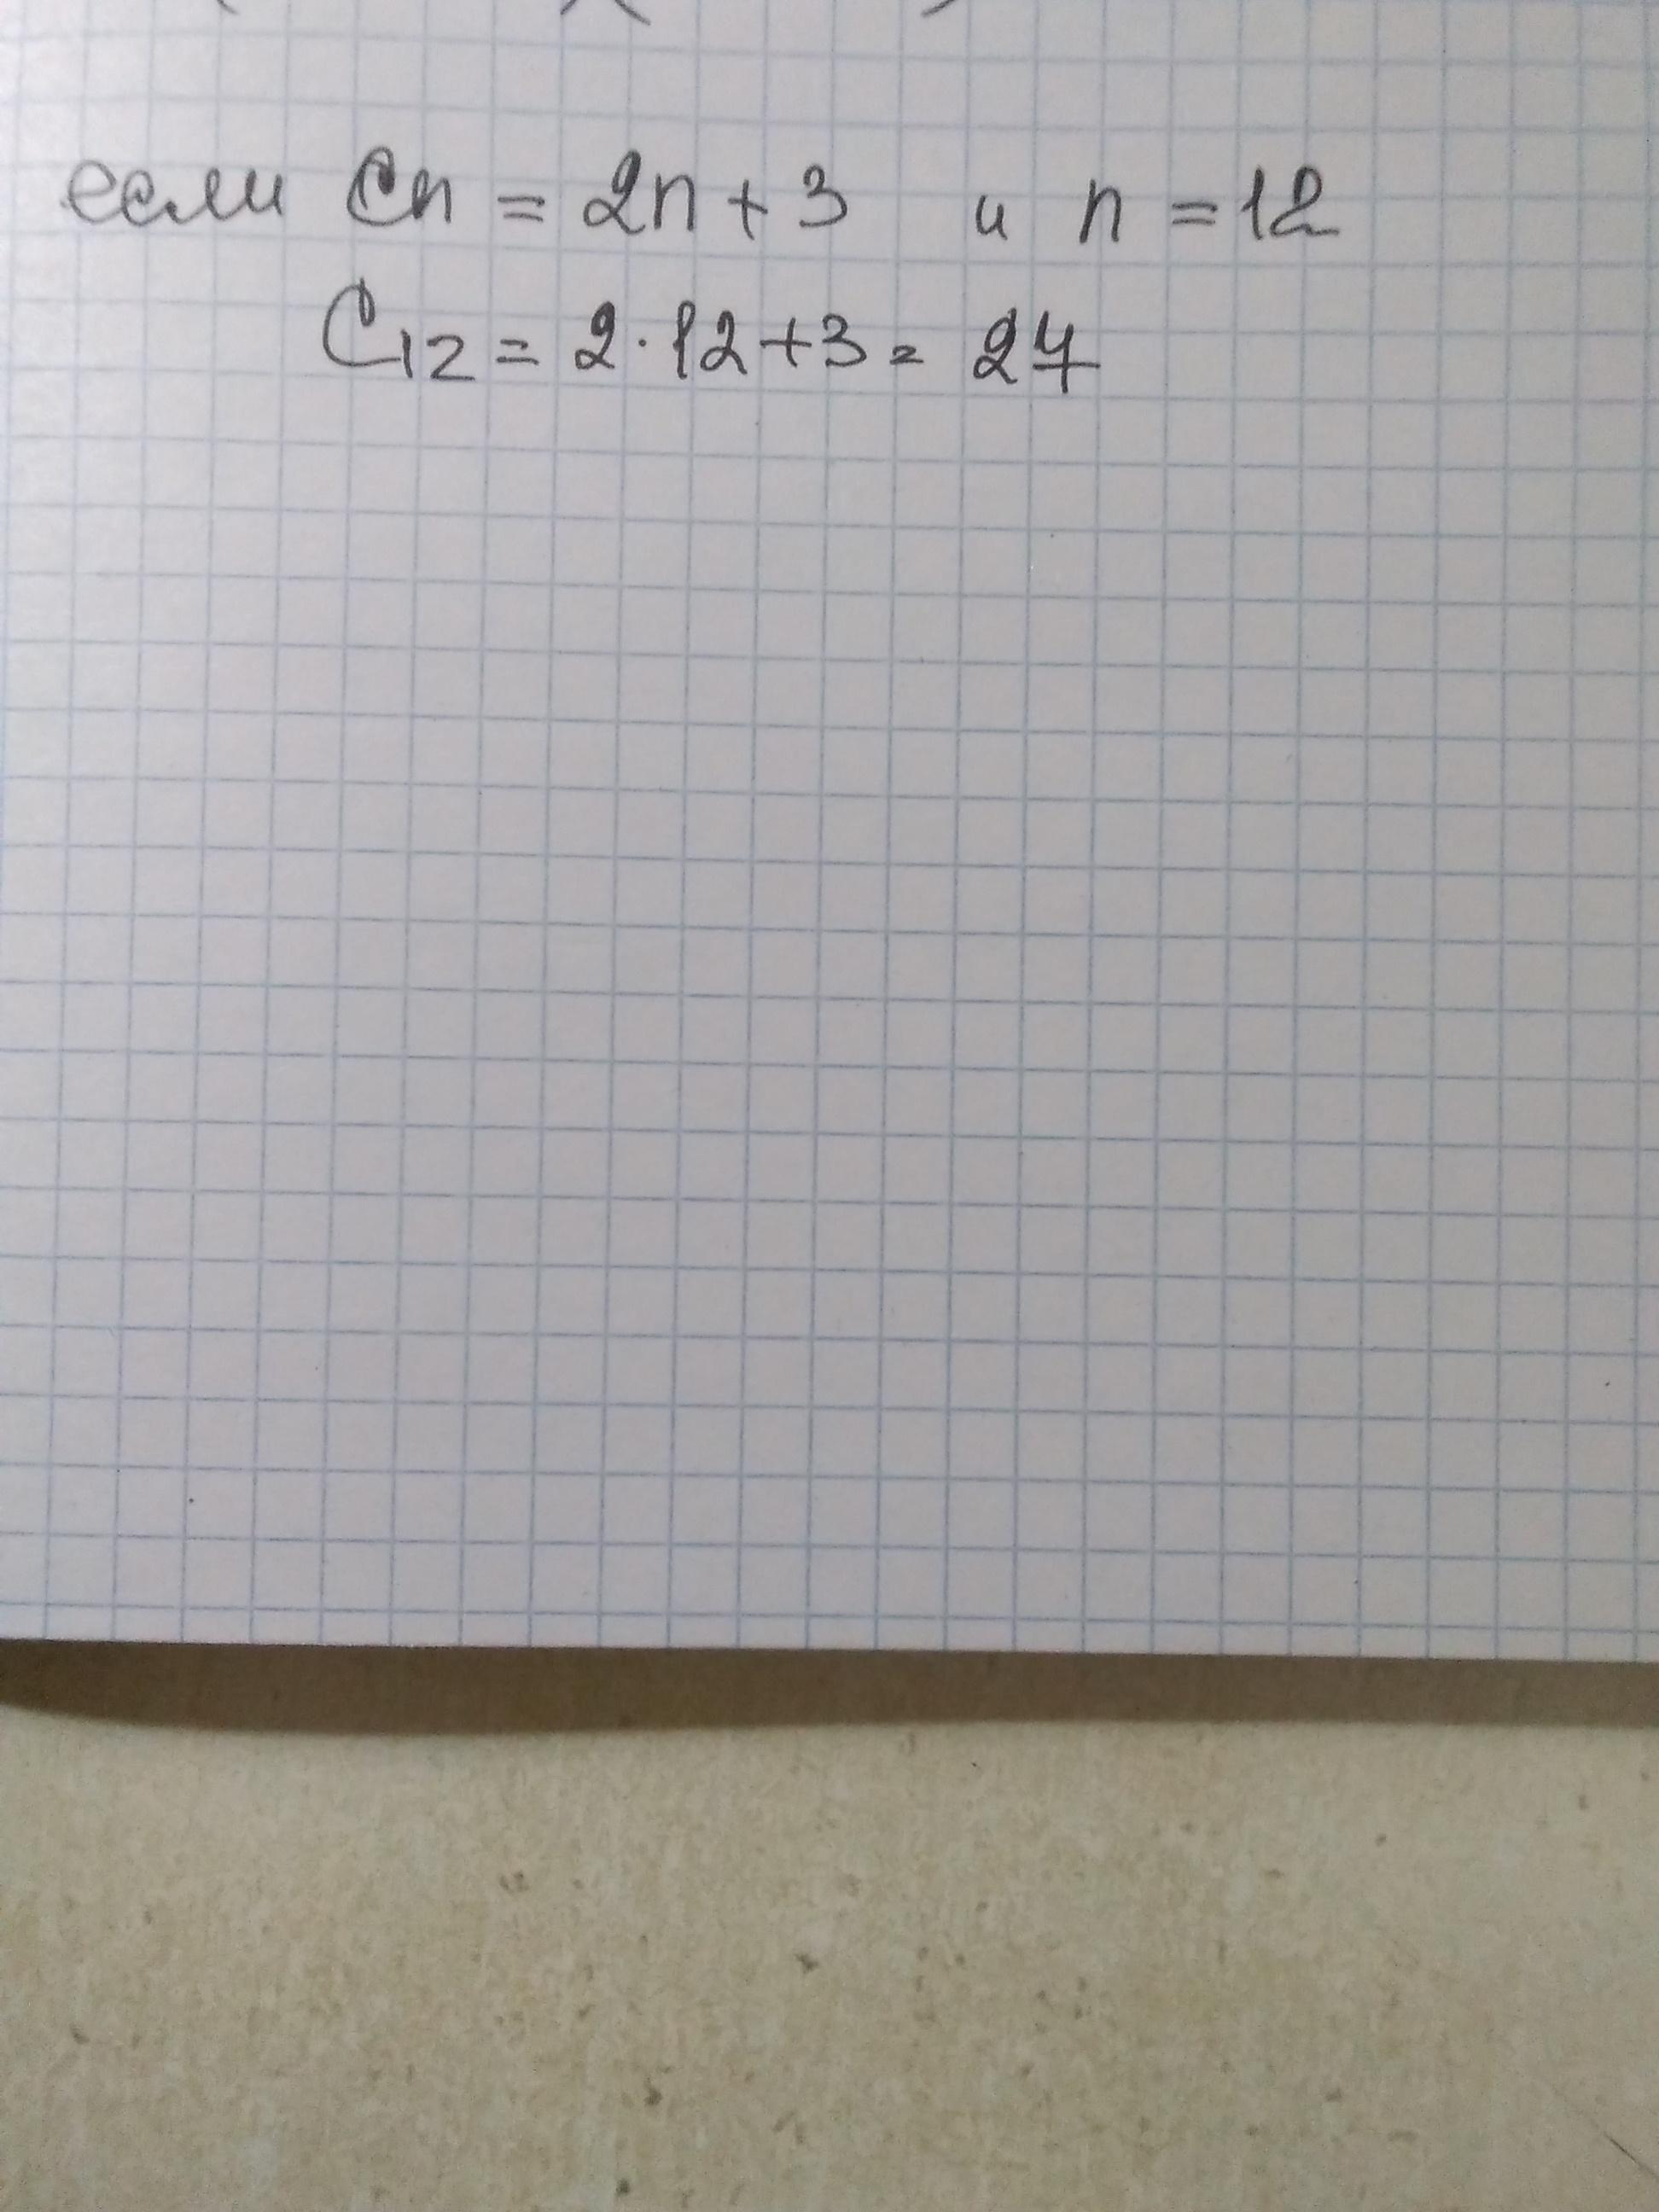 если Cn = 2n + 3 и n = 12
C12 = 2·12+3= 27